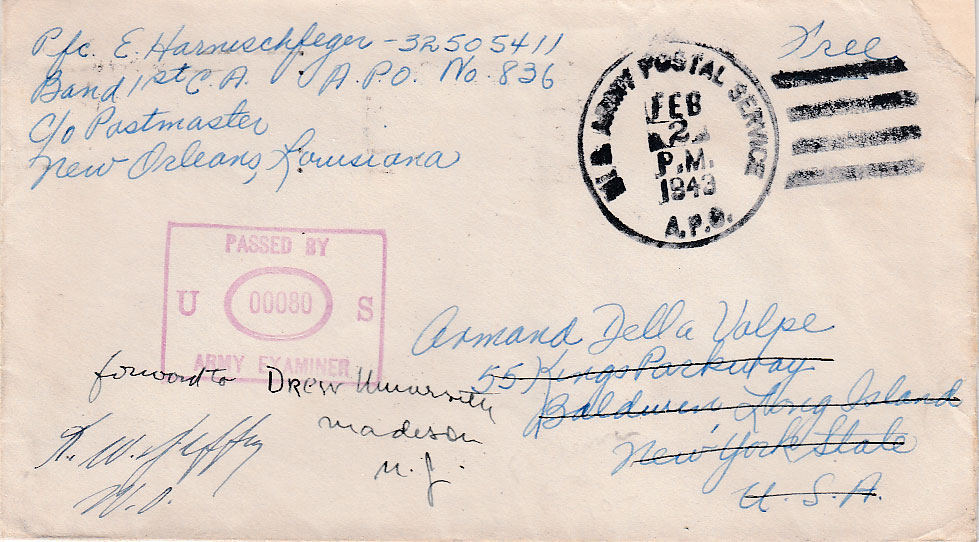 Pfc. E. Harnischfeger - 32505411
Band 1st C.A. A.P.O. No. 836
C/o Postmaster
New Orleans, Louisiana
Free
U.S. ARMY POSTAL SERVICE
FEB
2
P.M.
1943
A.P.O.
PASSED BY
U 00080 S
ARMY EXAMINER
Armand Della Volpe
55 Kings Parkway
Baldwin Long Island
New York State
U. S. A.
forward to Drew University
Madison
N. J.
W.O.